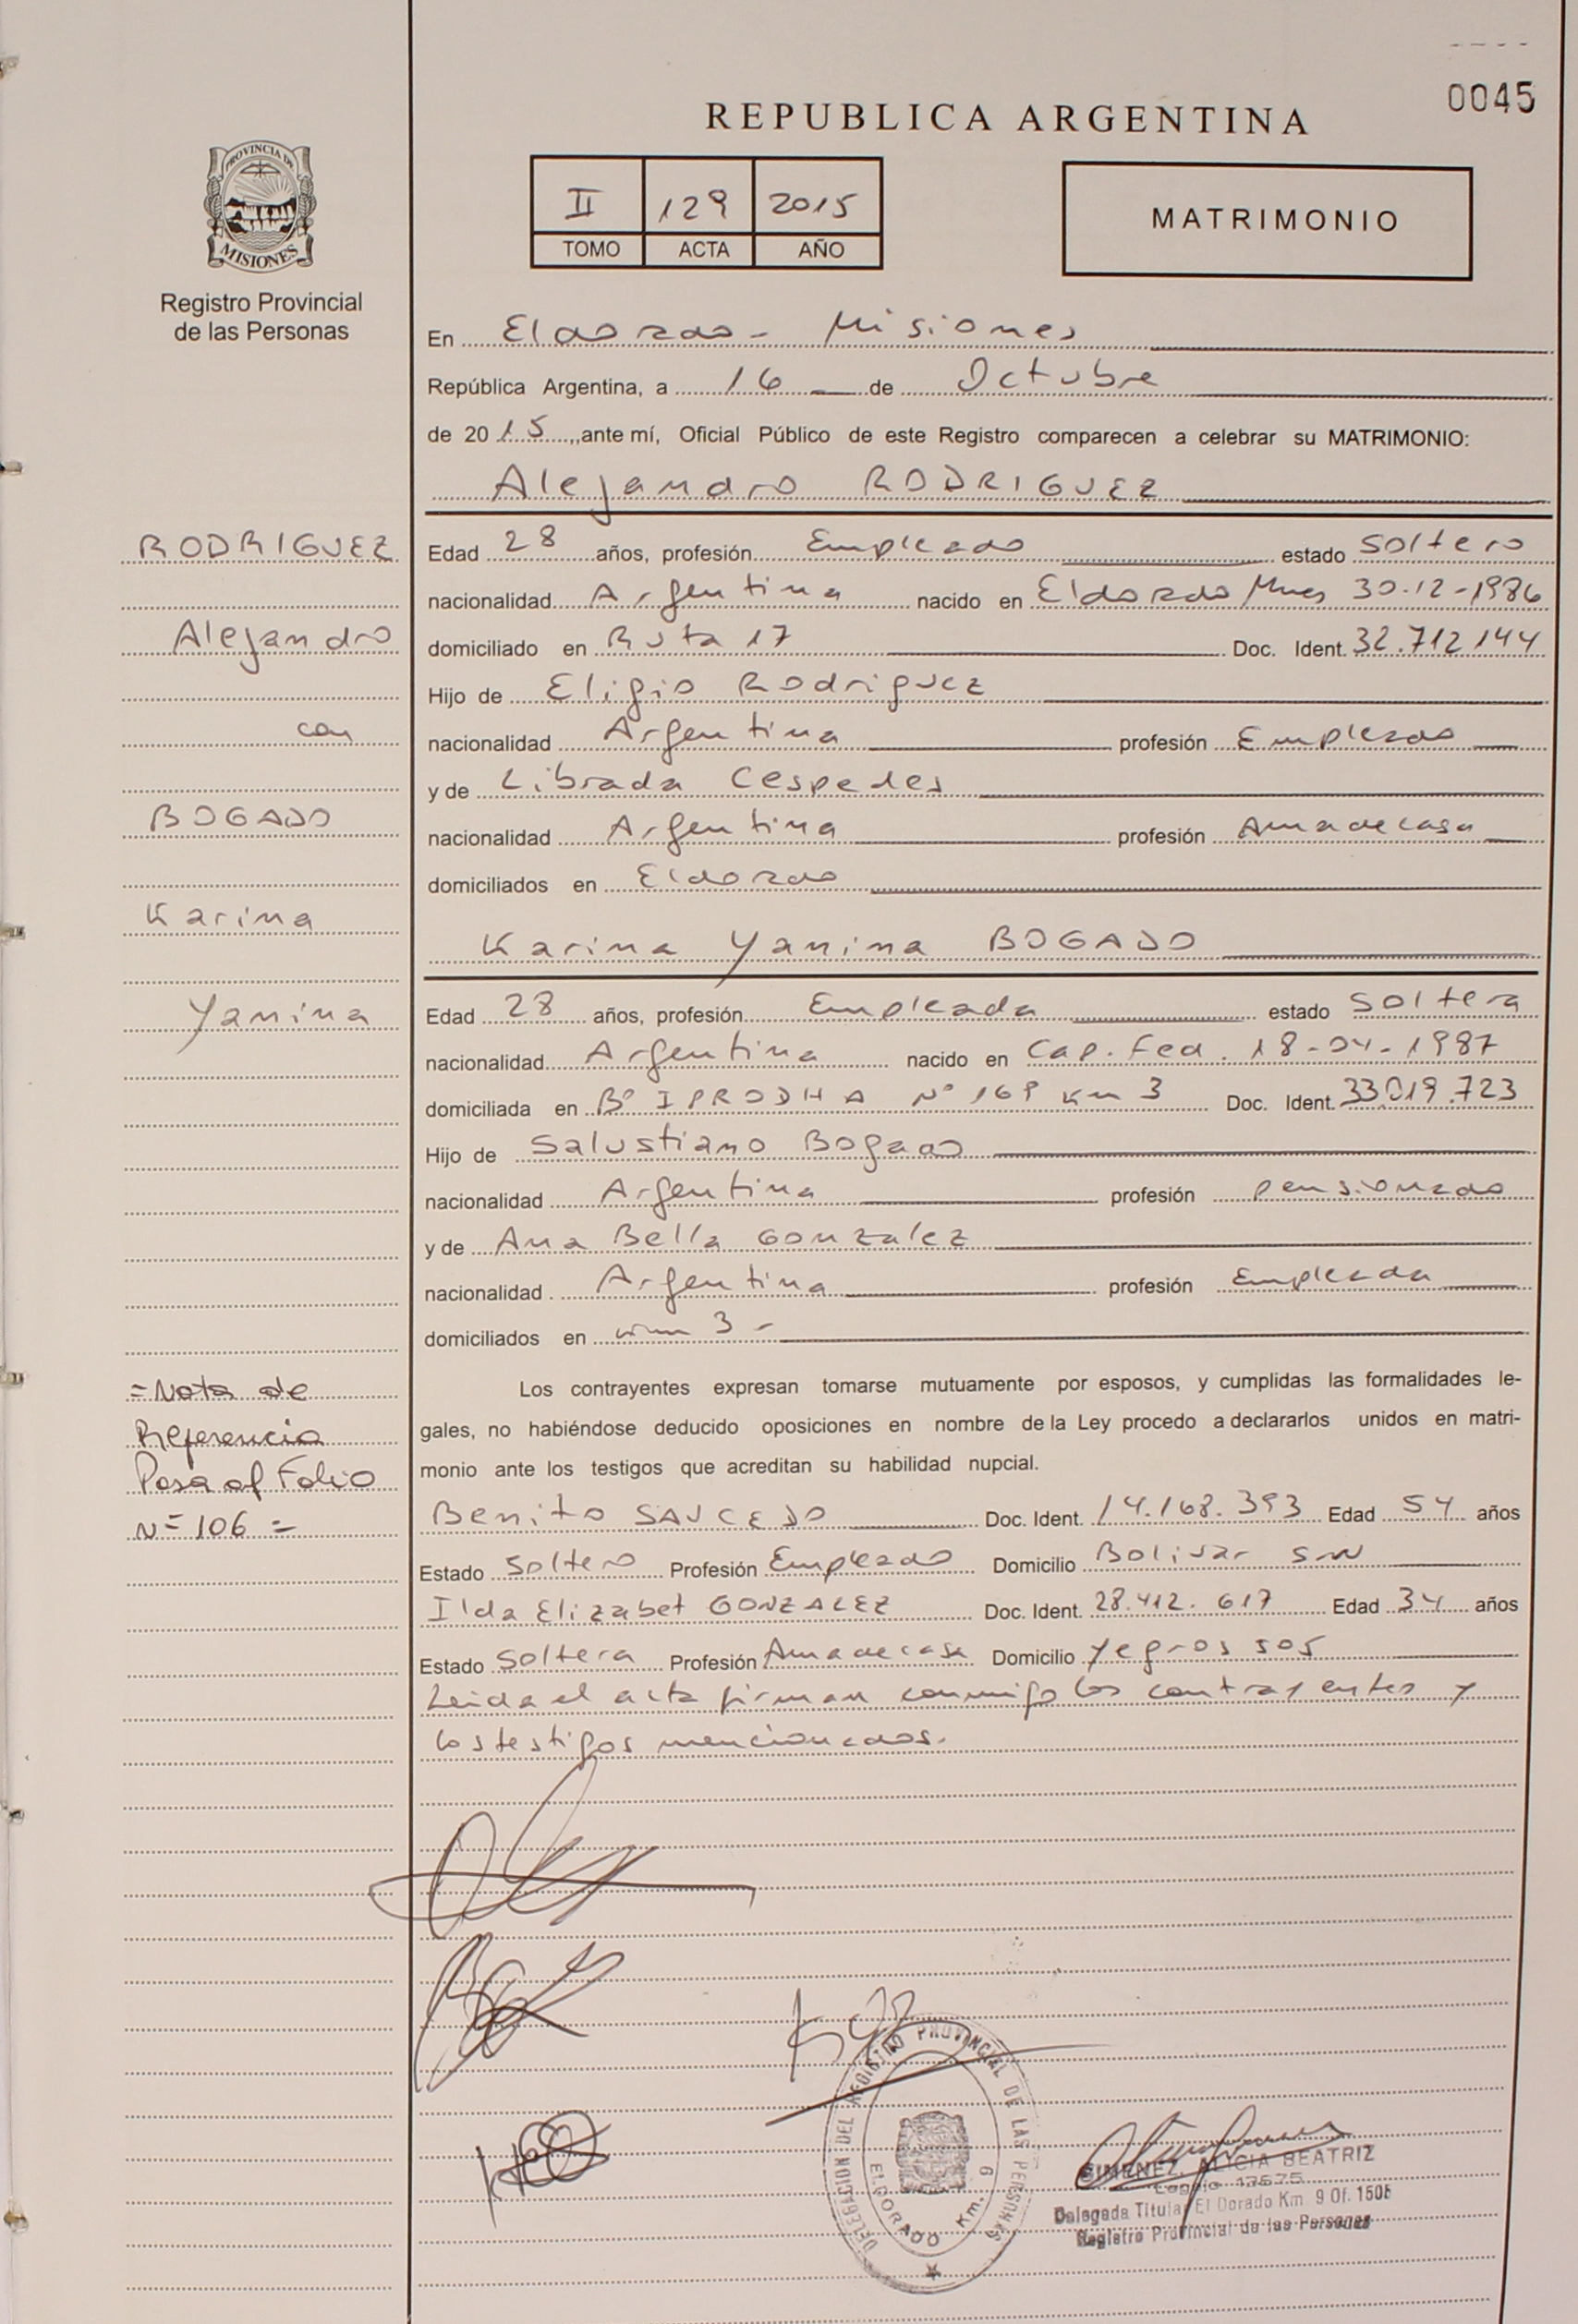 0045
REPUBLICA ARGENTINA
PROVINCIA DE
MISIONES
Registro Provincial
de las Personas
II 129 2015
TOMO ACTA AÑO
MATRIMONIO
En Eldorado - Misiones
República Argentina, a 16 de Octubre
de 2015, ante mí, Oficial Público de este Registro comparecen a celebrar su MATRIMONIO:
Alejandro RODRIGUEZ
RODRIGUEZ
Alejandro
con
BOGADO
Karina
Yanina
Edad 28 años, profesión Empleado estado Soltero
nacionalidad Argentina nacido en Eldorado Mnes 30-12-1986
domiciliado en Ruta 17 Doc. Ident. 32.712.144
Hijo de Eligio Rodriguez
nacionalidad Argentina profesión Empleado
y de Librada Cespedes
nacionalidad Argentina profesión Ama de casa
domiciliados en Eldorado
Karina Yanina BOGADO
Edad 28 años, profesión Empleada estado Soltera
nacionalidad Argentina nacido en Cap. Fed. 18-04-1987
domiciliada en Bº IPRODHA Nº 169 Km 3 Doc. Ident. 33.019.723
Hijo de Salustiano Bogado
nacionalidad Argentina profesión pensionado
y de Ana Bella Gonzalez
nacionalidad Argentina profesión Empleada
domiciliados en Km 3 -
= Nota de
Referencia
Pasa al Folio
Nº 106 =
Los contrayentes expresan tomarse mutuamente por esposos, y cumplidas las formalidades le-
gales, no habiéndose deducido oposiciones en nombre de la Ley procedo a declararlos unidos en matri-
monio ante los testigos que acreditan su habilidad nupcial.
Benito SAUCEDO Doc. Ident. 14.168.393 Edad 54 años
Estado Soltero Profesión Empleado Domicilio Bolivar S/N
Ilda Elizabet GONZALEZ Doc. Ident. 28.412.617 Edad 34 años
Estado Soltera Profesión Ama de casa Domicilio Yegros 505
Leida el acta firman conmigo los contrayentes y
los testigos mencionados.
DELEGACION DEL REGISTRO PROVINCIAL DE LAS PERSONAS
ELDORADO Km. 9
GIMENEZ, ALICIA BEATRIZ
Legajo 17675
Delegada Titular El Dorado Km. 9 Of. 1505
Registro Provincial de las Personas